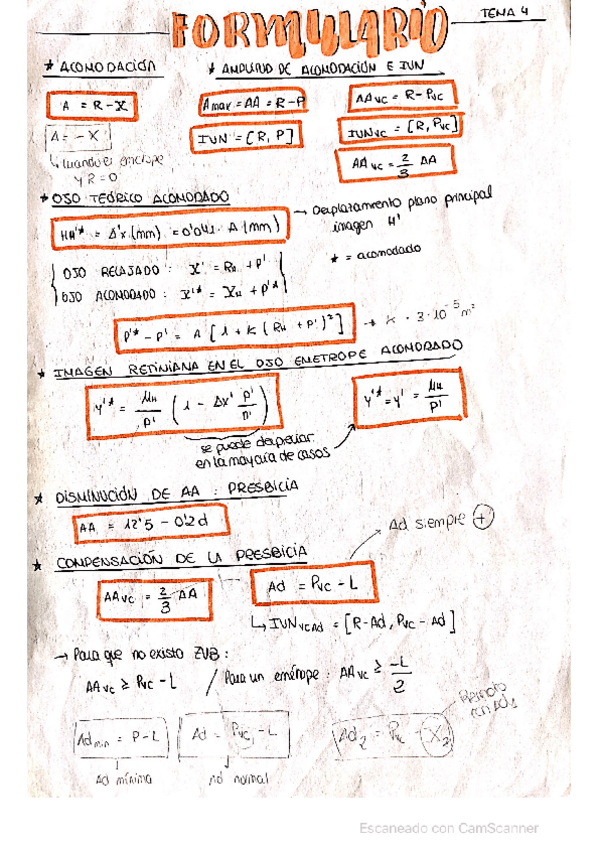 FORMULARIO
TEMA 4
* ACOMODACIÓN
* AMPLITUD DE ACOMODACIÓN E IUN
A = R - X
A max = AA = R - P
AA vc = R - Pvc
A = - X
IUN = [R, P]
IUN vc = [R, Pvc]
↳ cuando es emetrope
y R = 0
AA vc = 2/3 AA
* OJO TEÓRICO ACOMODADO
HH'* = Δ'x (mm) = 0'041 · A (mm)
→ Desplazamiento plano principal
imagen H'
* = acomodado
OJO RELAJADO : X' = RH + P'
OJO ACOMODADO : X'* = XH + P'*
P'* - P' = A [1 + K (RH + P')²]
→ K · 3·10⁻⁵ m²
* IMAGEN RETINIANA EN EL OJO EMETROPE ACOMODADO
y'* = μH/P' (1 - Δx' P'/n')
y'* = y' = μH/P'
se puede despreciar
en la mayoría de casos
* DISMINUCIÓN DE AA : PRESBICIA
AA = 12'5 - 0'2 d
Ad siempre +
* COMPENSACIÓN DE LA PRESBICIA
AA vc = 2/3 AA
Ad = Pvc - L
↳ IUN vcAd = [R - Ad, Pvc - Ad]
→ Para que no existo ZVB :
AA vc ≥ Pvc - L
/ Para un emétrope : AA vc ≥ -L/2
Remoto
con Ad1
Ad min = P - L
Ad = Pvc - L
Ad2 = Pvc - X2
Ad mínima
Ad normal
Escaneado con CamScanner